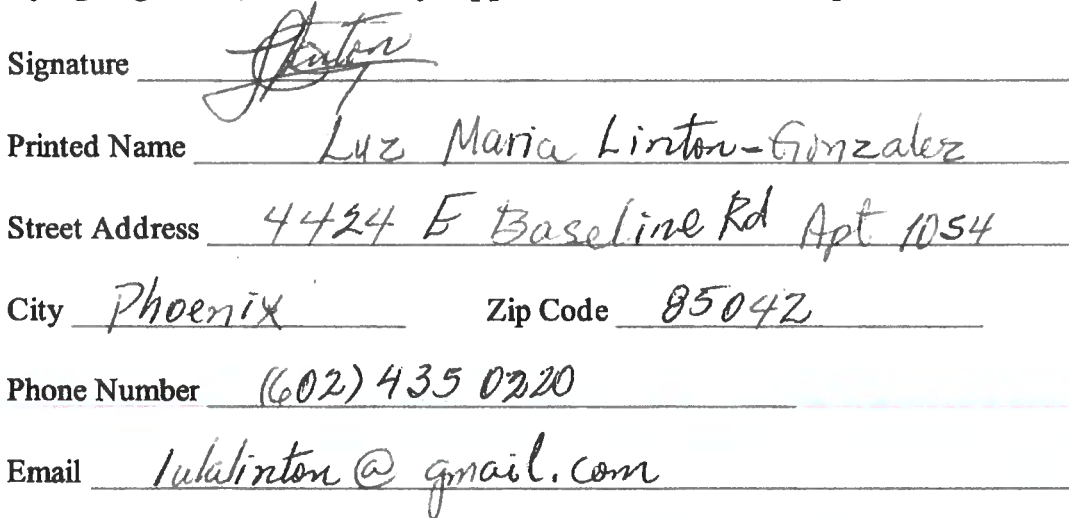 Signature Linton
Printed Name Luz Maria Linton-Gonzalez
Street Address 4424 E Baseline Rd Apt 1054
City Phoenix Zip Code 85042
Phone Number (602) 435 0220
Email lulalinton@gmail.com